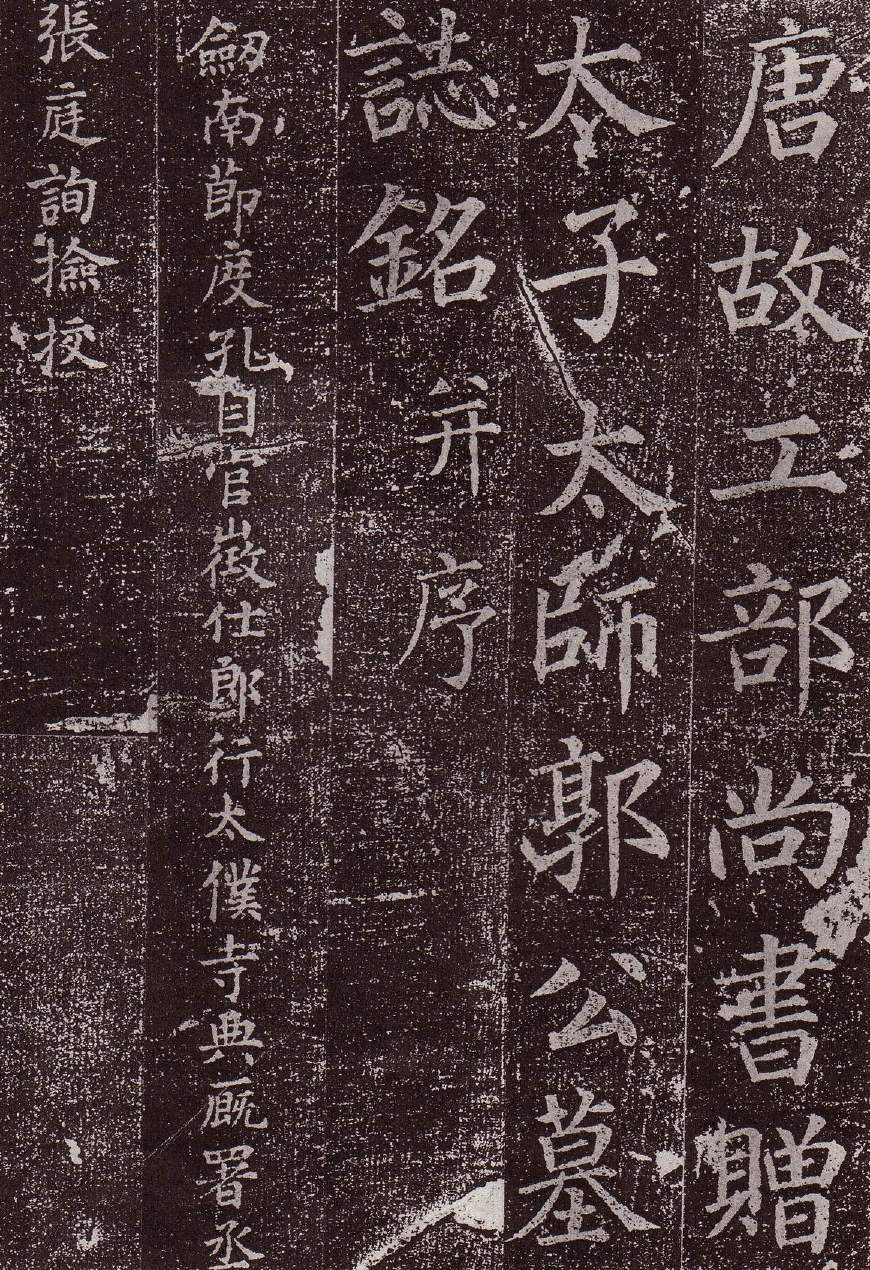 唐故工部尚書贈
太子太師郭公墓
誌銘并序
劔南節度孔目官徵仕郎行太僕寺典廐署丞
張庭詢撿挍